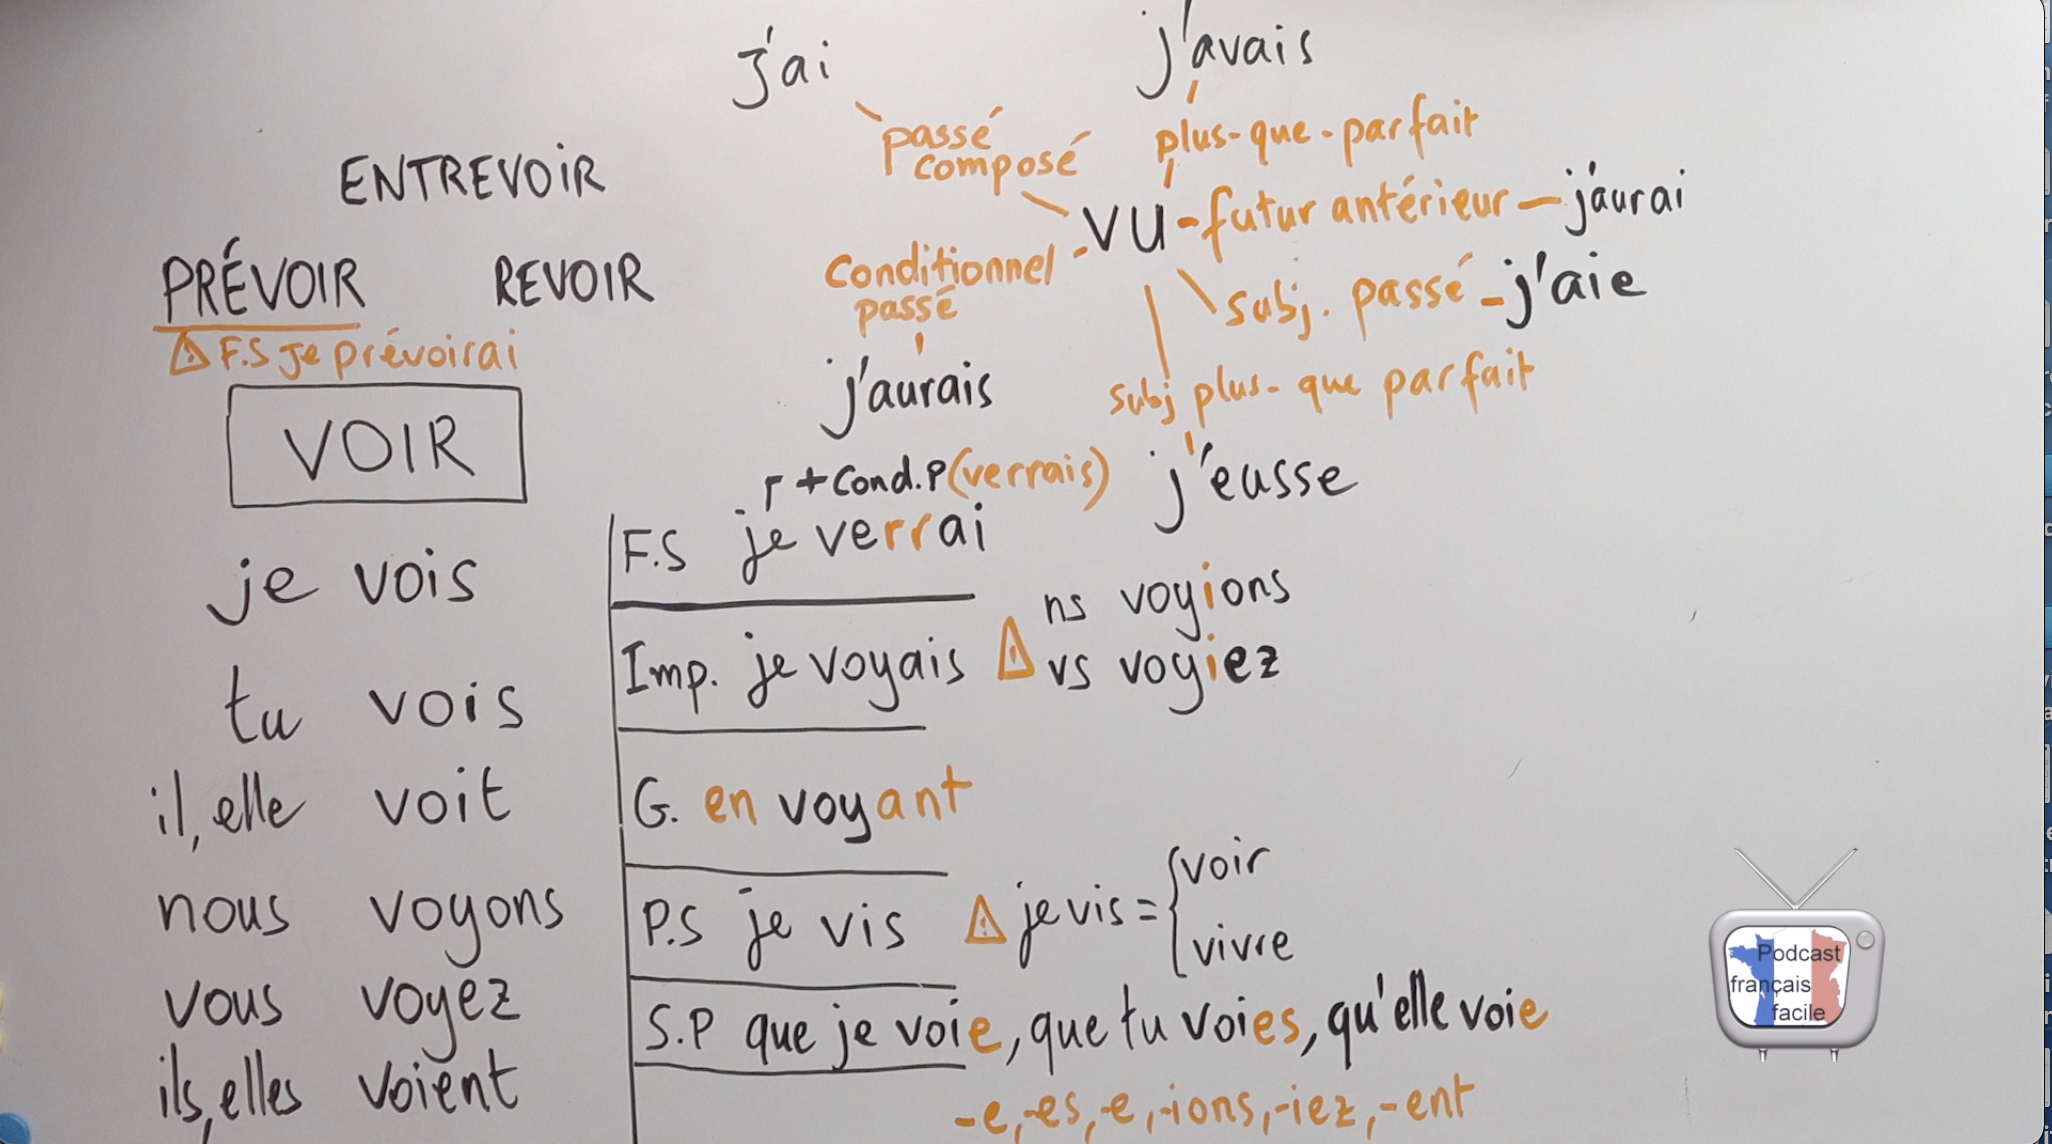 j'ai
j'avais
passé
composé
plus-que-parfait
VU - futur antérieur - j'aurai
Conditionnel
passé
j'aurais
subj. passé - j'aie
subj plus-que parfait
j'eusse
ENTREVOIR
PRÉVOIR REVOIR
⚠ F.S je prévoirai
VOIR
je vois
tu vois
il, elle voit
nous voyons
vous voyez
ils, elles voient
+ Cond.P (verrais)
F.S je verrai
Imp. je voyais ⚠ ns voyions
vs voyiez
G. en voyant
P.S je vis ⚠ je vis = { voir
vivre
S.P que je voie, que tu voies, qu'elle voie
-e, -es, -e, -ions, -iez, -ent
Podcast
français
facile